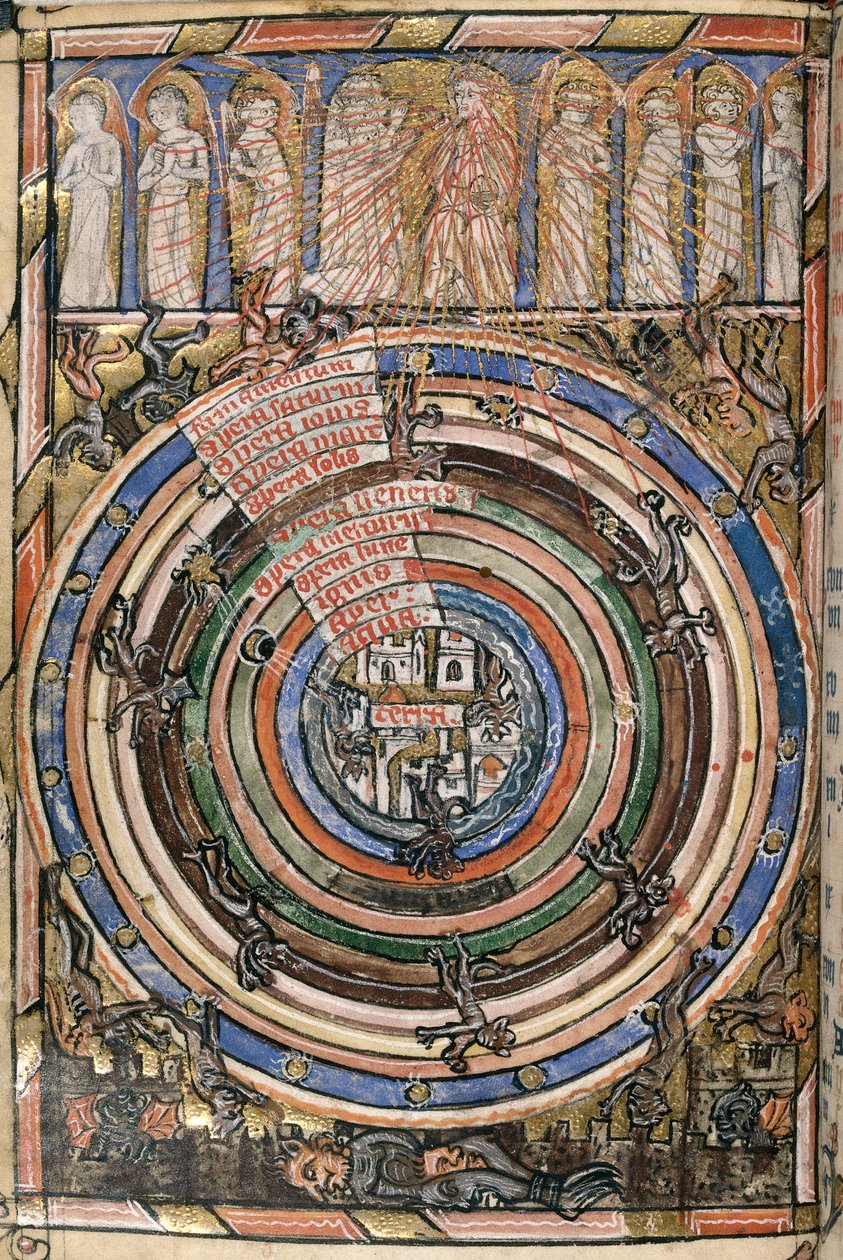 firmamentum
spera saturni
spera iouis
spera mart
spera solis
spera ueneris
spera mercurii
spera lune
ignis
ayer
aqua
terra.